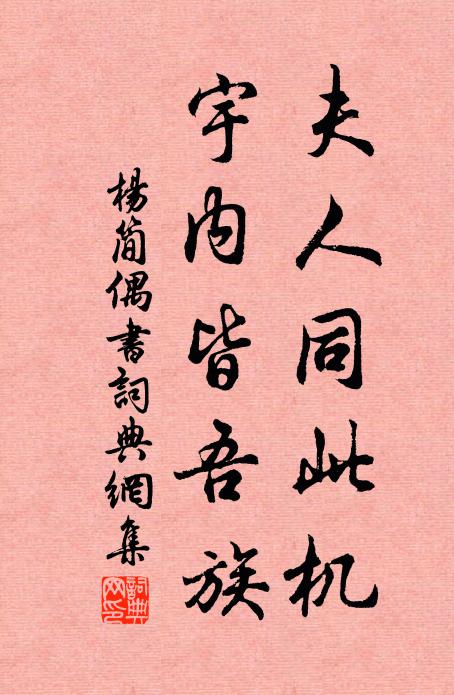 夫人同此机
宇内皆吾族
楊简偶書詞典網集
詞典网印